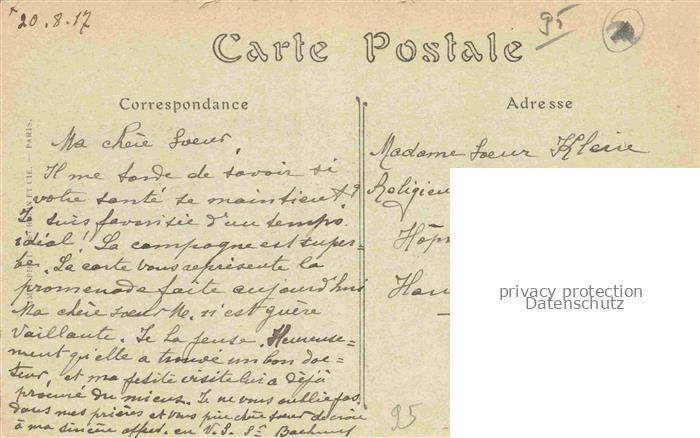 20.8.17
95
Carte Postale
Correspondance
Adresse
Ma chère Soeur,
Il me tarde de savoir si
votre santé se maintient?
Je suis favorisée d'un temps
idéal! La campagne est super=
be. La carte vous représente la
promenade faite aujourd'hui
Ma chère soeur M. n'est guère
vaillante. Je la pense. Heureuse=
ment qu'elle a trouvé un bon doc=
teur, et ma petite visite lui a déjà
procuré du mieux. Je ne vous oublie pas
dans mes prières et vous prie chère soeur de croire
à ma sincère affect. en V. S. Sr
Madame Soeur Kleie
Religieu
Hôp
Hau
privacy protection
Datenschutz
95
ET CIE. — PARIS.